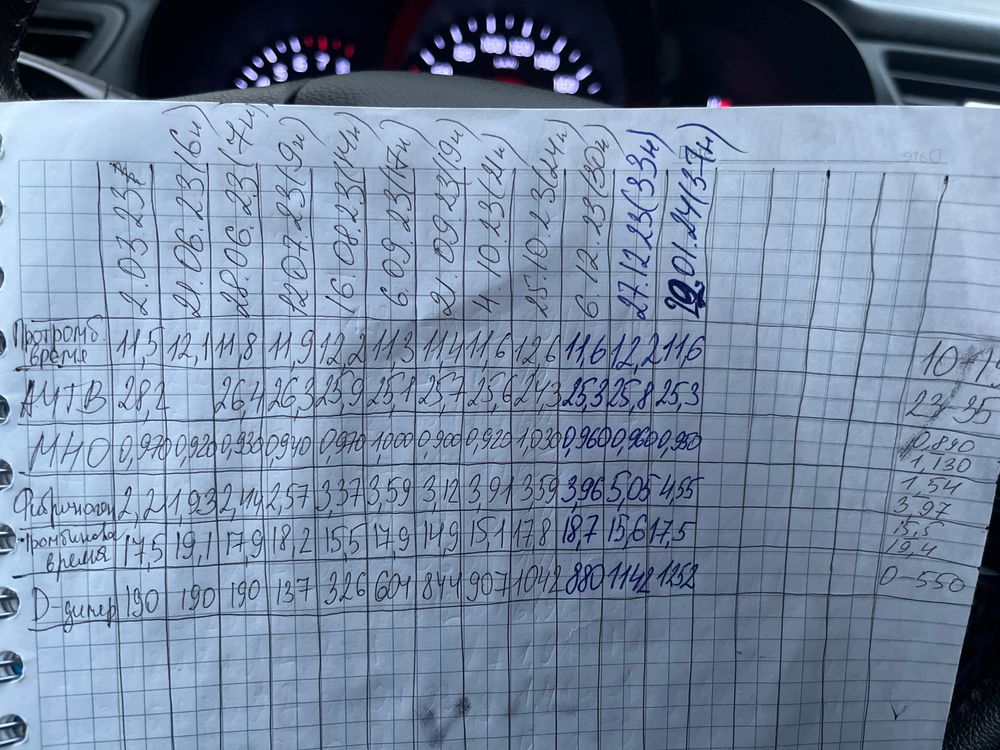 2.03.23 21.06.23(6н) 28.06.23(7н) 12.07.23(9н) 16.08.23(14н) 6.09.23(17н) 21.09.23(19н) 4.10.23(21н) 25.10.23(24н) 6.12.23(30н) 27.12.23(33н) 29.01.24(37н)
Протромб. время 11,5 12,1 11,8 11,9 12,2 11,3 11,4 11,6 12,6 11,6 12,2 11,6
АЧТВ 28,2 26,4 26,3 25,9 25,1 25,7 25,6 24,3 25,3 25,8 25,3 23-35
МНО 0,970 0,920 0,930 0,940 0,970 1,000 0,900 0,920 1,030 0,960 0,960 0,950 0,890 1,130
Фибриноген 2,21 1,93 2,44 2,57 3,37 3,59 3,12 3,91 3,59 3,96 5,05 4,55 1,54 3,97
Тромбиновое время 17,5 19,1 17,9 18,2 15,5 17,9 14,9 15,1 17,8 18,7 15,6 17,5 15,5 19,4
D-димер 190 190 190 137 326 601 844 907 1042 880 1142 1252 0-550
Date